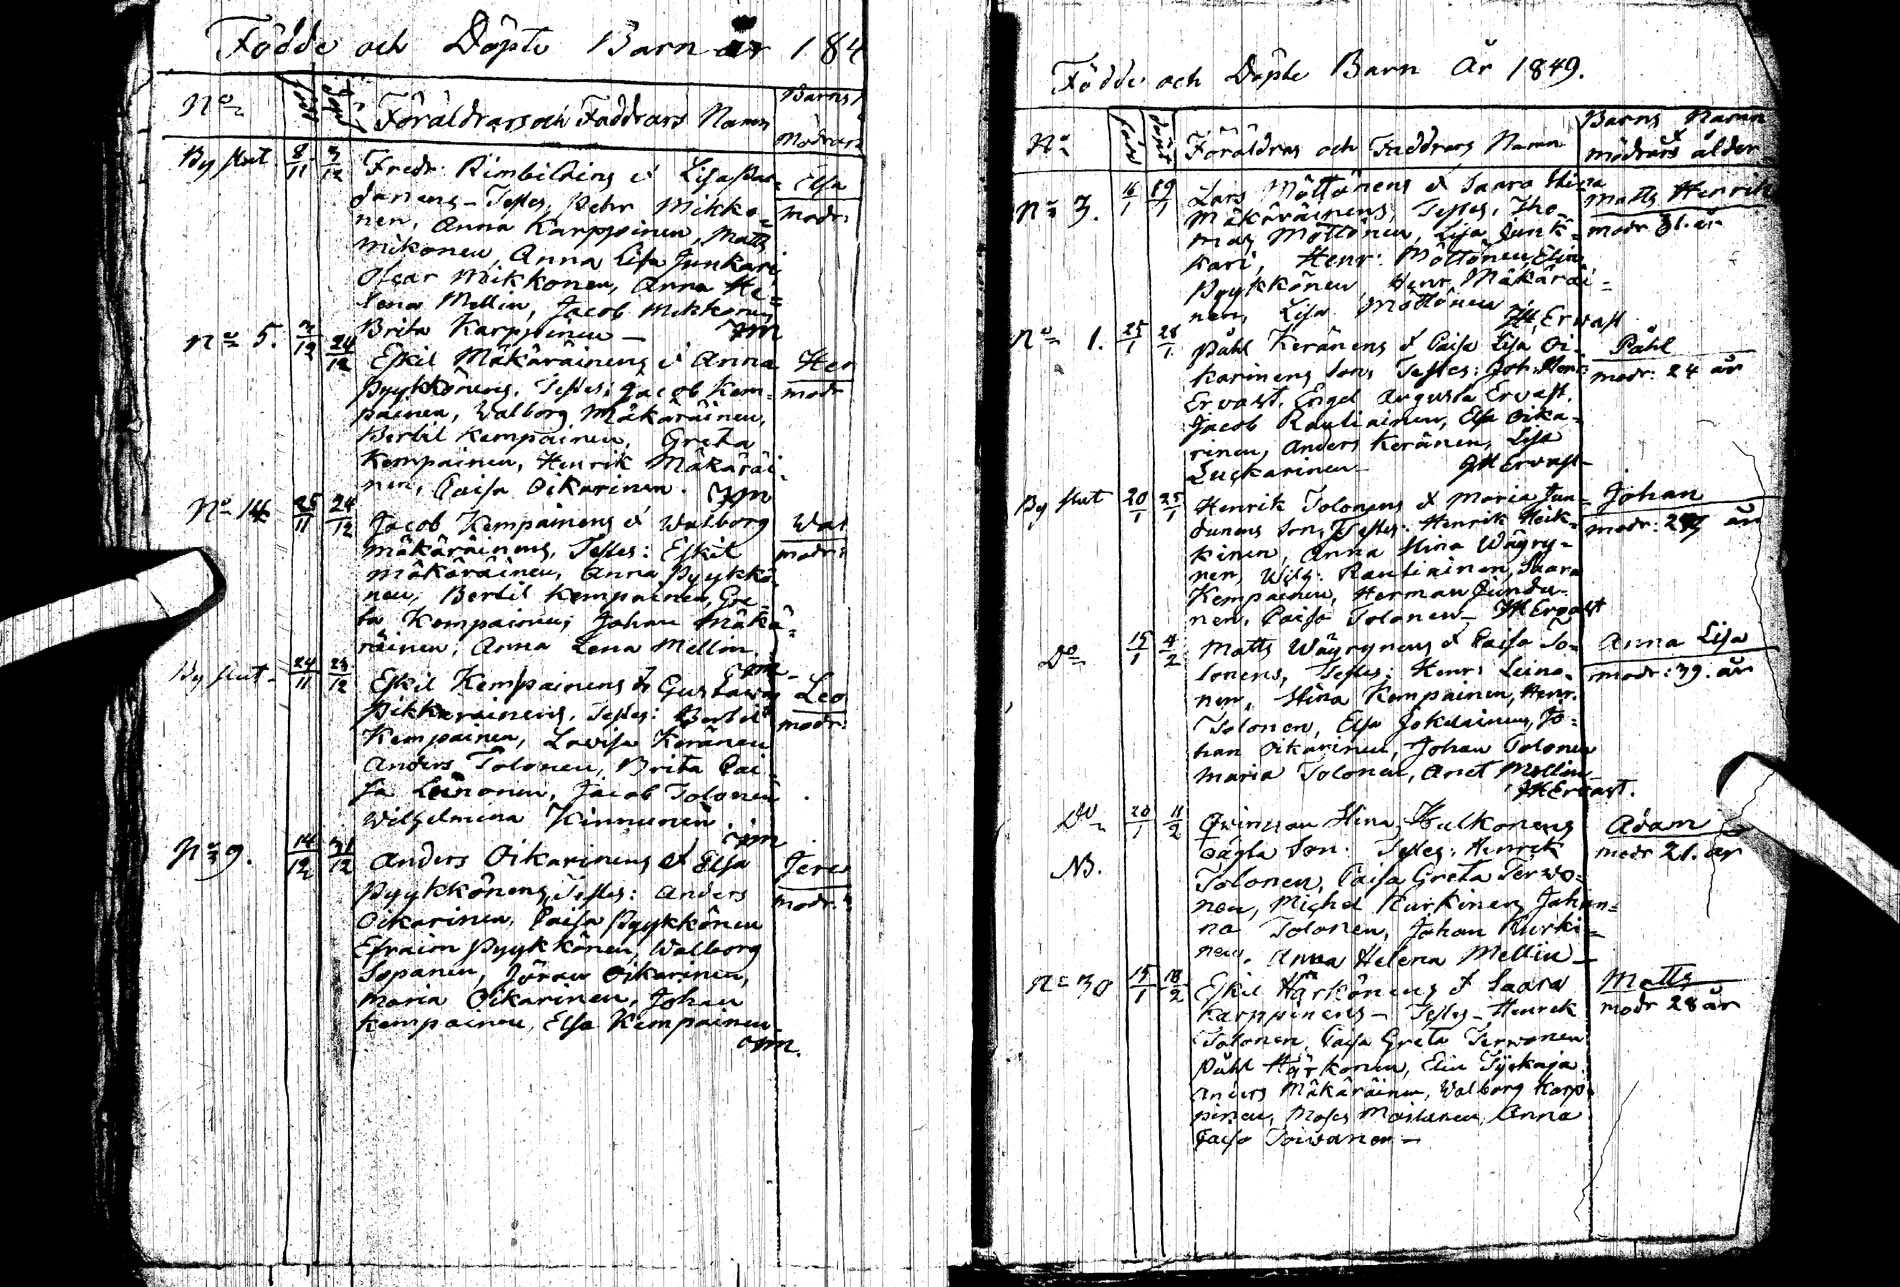 Födde och Döpte Barn år 184
No
född
döpt
Föräldrars och Faddrars Namn
Barns
Mödrars
By slut 8/11 3/12 Fredr: Rimbileins & Lisa Par=
danens - Testes, Petr Mikko=
nen, Anna Karppinen, Matts
Mikonen, Anna Lisa Junkari
Oscar Mikkonen, Anna He=
lena Mellin, Jacob Mikkonen
Brita Karppinen —
Elsa
modr:
No 5. 2/12 24/12 Eskil Mäkäräinens & Anna
Pyykkönens. Testes: Jacob Kem=
painen, Walborg Mäkäräinen,
Bertil Kempainen, Greta
Kempainen, Henrik Mäkäräi=
nen, Caisa Oikarinen.
Hen
modr
No 14 25/11 24/12 Jacob Kempainens & Walborg
Mäkäräinens, Testes: Eskil
Mäkäräinen, Anna Pyykkö=
nen, Bertil Kempainen, Gre=
ta Kempainen, Johan Mäkä=
räinen, Anna Lena Mellin.
Wal
modr:
By slut - 24/11 28/12 Eskil Kempainens & Gustawa
Pikkarainens. Testes: Bertil
Kempainen, Lovisa Keränen
Anders Tolonen, Brita Cai=
sa Leinonen, Jacob Tolonen
Wilhelmina Kinnunen
Leo
modr:
No 9. 14/12 31/12 Anders Oikarinens & Elsa
Pyykkönens, Testes: Anders
Oikarinen, Caisa Pyykkönen
Efraim Pyykkönen, Walborg
Sopanen, Göran Oikarinen,
Maria Oikarinen, Johan
Kempainen, Elsa Kempainen.
Jere
modr:
Födde och Döpte Barn År 1849.
No
född
döpt
Föräldrars och Faddrars Namn
Barns Namn
&
mödrars ålder
No 3. 16/1 19/1 Lars Möttönens & Saara Stina
Mäkäräinens, Testes, Tho=
mas Möttönen, Lisa Junk=
kari, Henr: Möttönen, Elin
Pyykkönen, Henr. Mäkäräi=
nen, Lisa Möttönen
JH Ervast
Matts Henrik
modr 31. år
No 1. 25/1 28/1 Påhl Keränens & Caisa Lisa Oi=
karinens Son, Testes: Joh: Henr:
Ervast, Engel Augusta Ervast,
Jacob Rautiainen, Elsa Oika=
rinen, Anders Keränen, Lisa
Luckarinen — JH Ervast —
Påhl
modr: 24 år
By slut 20/1 25/1 Henrik Tolonens & Maria Jun=
dunens Son, Testes: Henrik Heik=
kinen, Anna Stina Wäyry=
nen, Wilh: Rautiainen, Saara
Kempainen, Herman Jundu=
nen, Caisa Tolonen — JH Ervast
Johan
år
Do 15/1 4/2 Matts Wäyrynens & Caisa To=
lonens, Testes: Henr: Leino=
nen, Stina Kempainen, Henr.
Tolonen, Elsa Jokelainen, Jo=
han Oikarinen, Johan Tolonen
Maria Tolonen, Anet Mellin —
JH Ervast.
Anna Lisa
modr: 39. år
Do 20/1 11/2 Qvinsan Stina Hulkonens
oägta Son. Testes: Henrik
Tolonen, Caisa Greta Terwo=
nen, Michel Kurkinen, Johan=
na Tolonen, Johan Kurki=
nen, Anna Helena Mellin —
NB.
Adam
modr 21. år
No 30 15/1 18/2 Eskil Härkönens & Saara
Karppinens — Testes — Henrik
Tolonen, Caisa Greta Terwonen
Påhl Härkönen, Elin Tyskaja
Anders Mäkäräinen, Walborg Karp=
pinen, Moses Moilanen, Anna
Caisa Toivanen —
Matts
modr 28 år